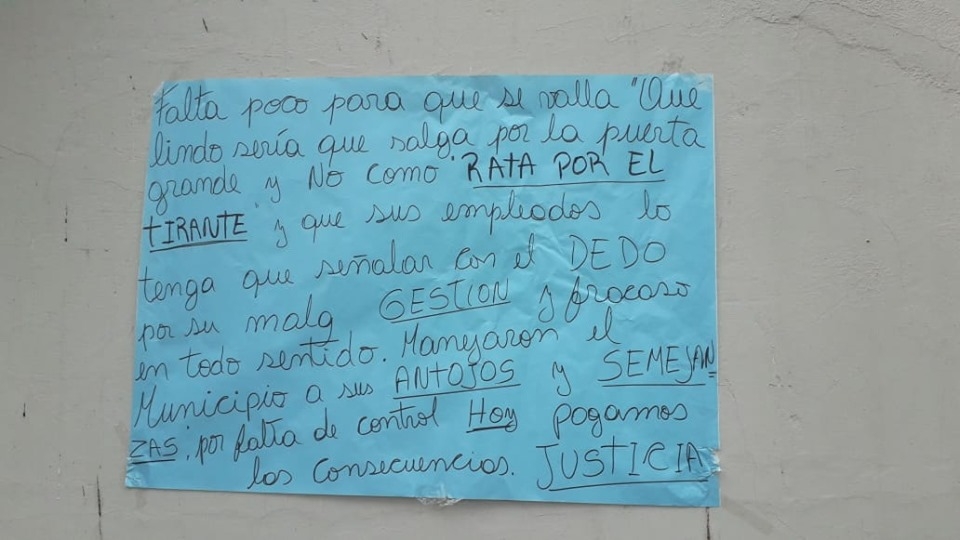 Falta poco para que se valla "Que
lindo sería que salga por la puerta
grande y No como "RATA POR EL
tIRANTE" y que sus empleados lo
tenga que señalar con el DEDO
por su mala GESTION y fracaso
en todo sentido. Manejaron el
Municipio a sus ANTOJOS y SEMEJAN
ZAS, por falta de control Hoy pagamos
las consecuencias. JUSTICIA